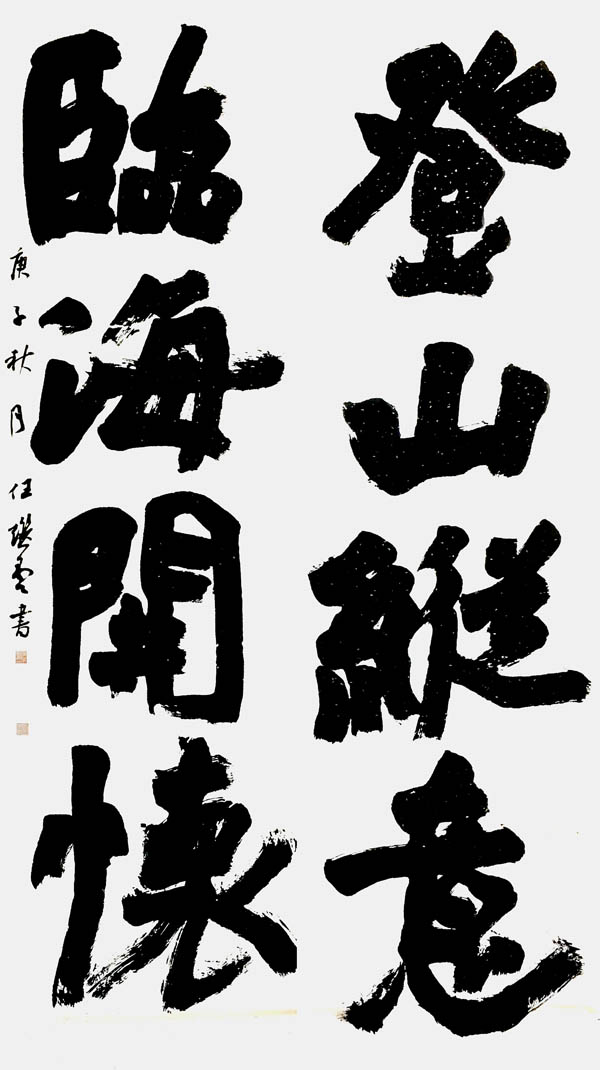 登山縱意
臨海開懷
庚子秋月任
書